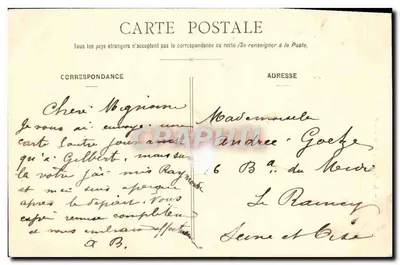 CARTE POSTALE
Tous les pays étrangers n'acceptent pas la correspondance au recto (Se renseigner à la Poste).
CORRESPONDANCE
ADRESSE
Cheri Mignonne
Je vous ai envoyé une
carte l'autre jour ainsi
qu'à Gilbert, mais sur
la votre j'ai mis Raymonde
et me suis aperçue
après le départ. Vous
remise complètement
et vous
A B.
Mademoiselle
Andrée Goetze
16 Bd. du Midi
Le Raincy
Seine et Oise